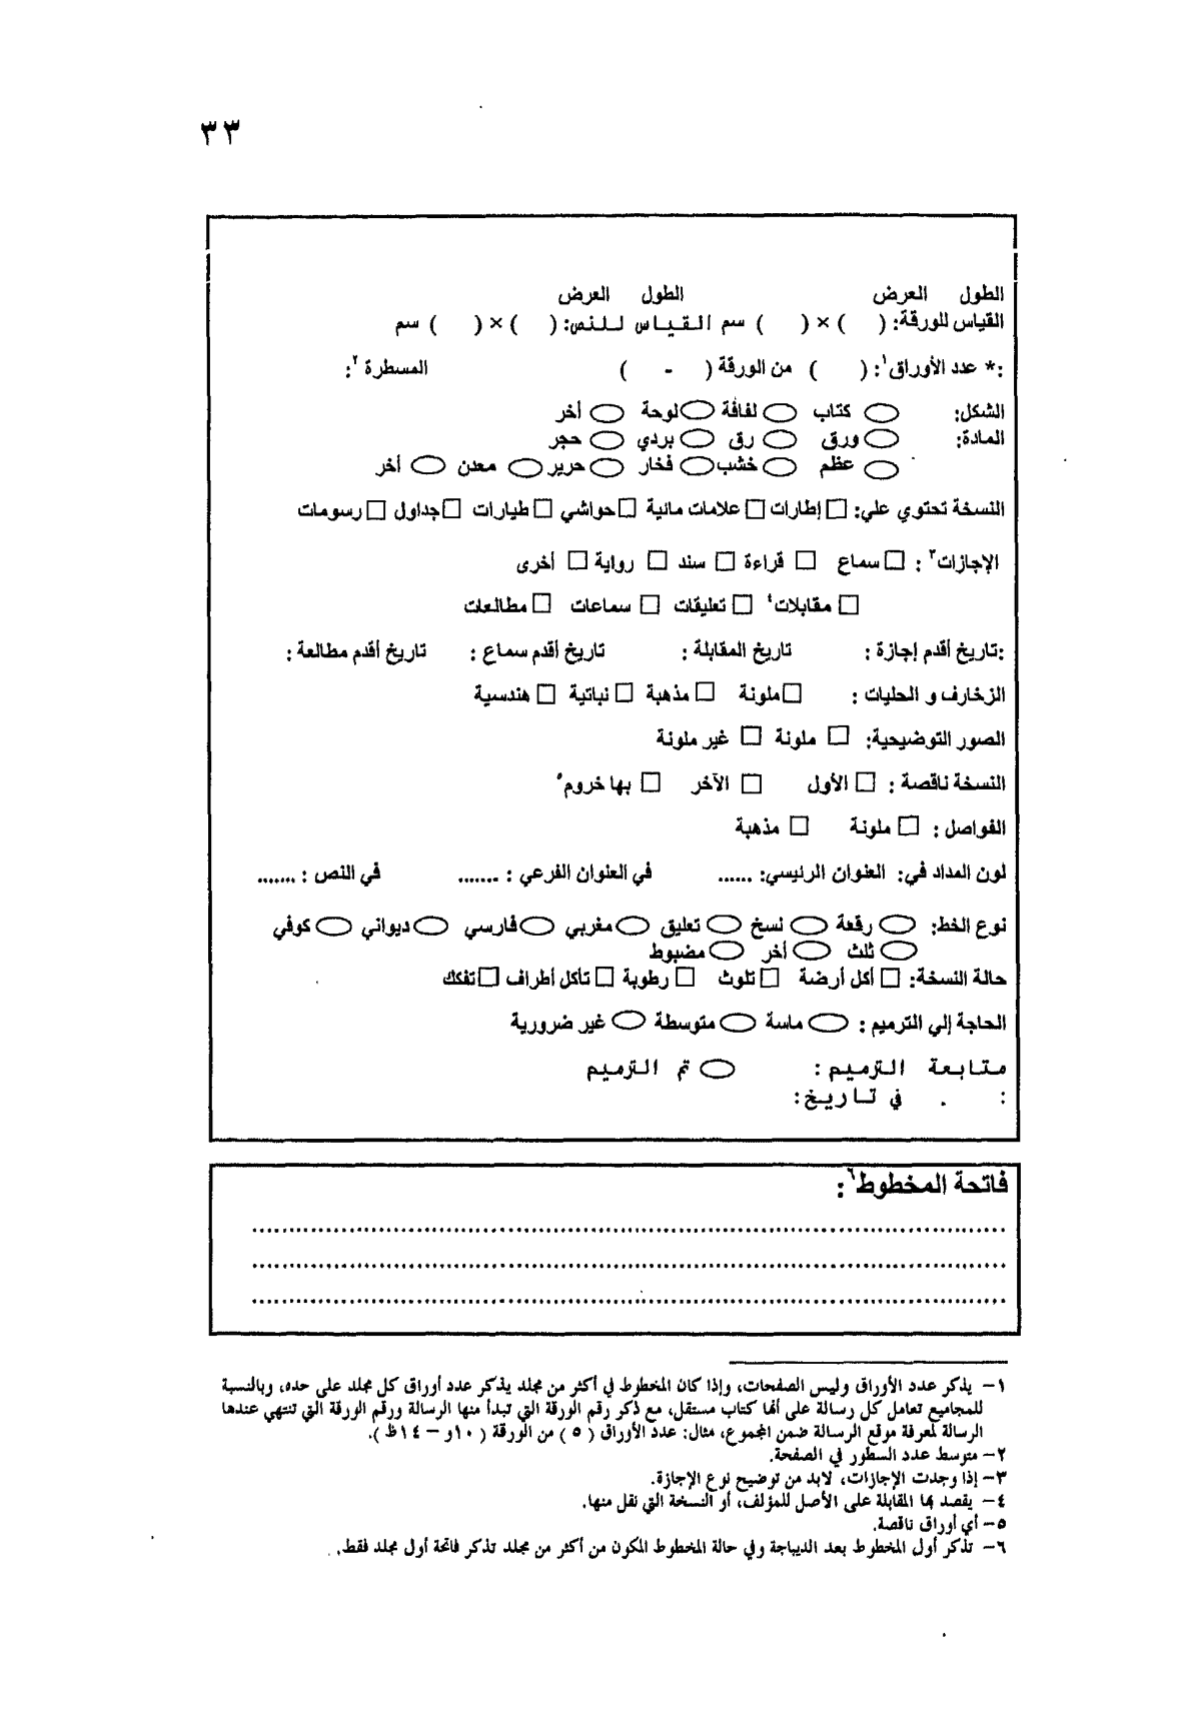 ٣٣
الطول العرض الطول العرض
القياس للورقة: ( ) × ( ) سم القياس للنص: ( ) × ( ) سم
:* عدد الأوراق١: ( ) من الورقة ( - ) المسطرة ٢:
الشكل: كتاب لفافة لوحة أخر
المادة: ورق رق بردي حجر
عظم خشب فخار حرير معدن أخر
النسخة تحتوي علي: إطارات علامات مائية حواشي طيارات جداول رسومات
الإجازات٣ : سماع قراءة سند رواية أخرى
مقابلات٤ تعليقات سماعات مطالعات
:تاريخ أقدم إجازة : تاريخ المقابلة : تاريخ أقدم سماع : تاريخ أقدم مطالعة :
الزخارف و الحليات : ملونة مذهبة نباتية هندسية
الصور التوضيحية: ملونة غير ملونة
النسخة ناقصة : الأول الآخر بها خروم٥
الفواصل : ملونة مذهبة
لون المداد في: العنوان الرئيسي: ...... في العنوان الفرعي : ....... في النص : .......
نوع الخط: رقعة نسخ تعليق مغربي فارسي ديواني كوفي
ثلث أخر مضبوط
حالة النسخة: أكل أرضة تلوث رطوبة تأكل أطراف تفكك
الحاجة إلي الترميم : ماسة متوسطة غير ضرورية
متابعة الترميم : تم الترميم
: . في تاريخ:
فاتحة المخطوط٦:
١- يذكر عدد الأوراق وليس الصفحات، وإذا كان المخطوط في أكثر من مجلد يذكر عدد أوراق كل مجلد على حده، وبالنسبة
للمجاميع تعامل كل رسالة على أنها كتاب مستقل، مع ذكر رقم الورقة التي تبدأ منها الرسالة ورقم الورقة التي تنتهي عندها
الرسالة لمعرفة موقع الرسالة ضمن المجموع، مثال: عدد الأوراق ( ٥ ) من الورقة ( ١٠و – ١٤ظ ).
٢- متوسط عدد السطور في الصفحة.
٣- إذا وجدت الإجازات، لابد من توضيح نوع الإجازة.
٤- يقصد بها المقابلة على الأصل للمؤلف، أو النسخة التي نقل منها.
٥- أي أوراق ناقصة.
٦- تذكر أول المخطوط بعد الديباجة وفي حالة المخطوط المكون من أكثر من مجلد تذكر فاتحة أول مجلد فقط.